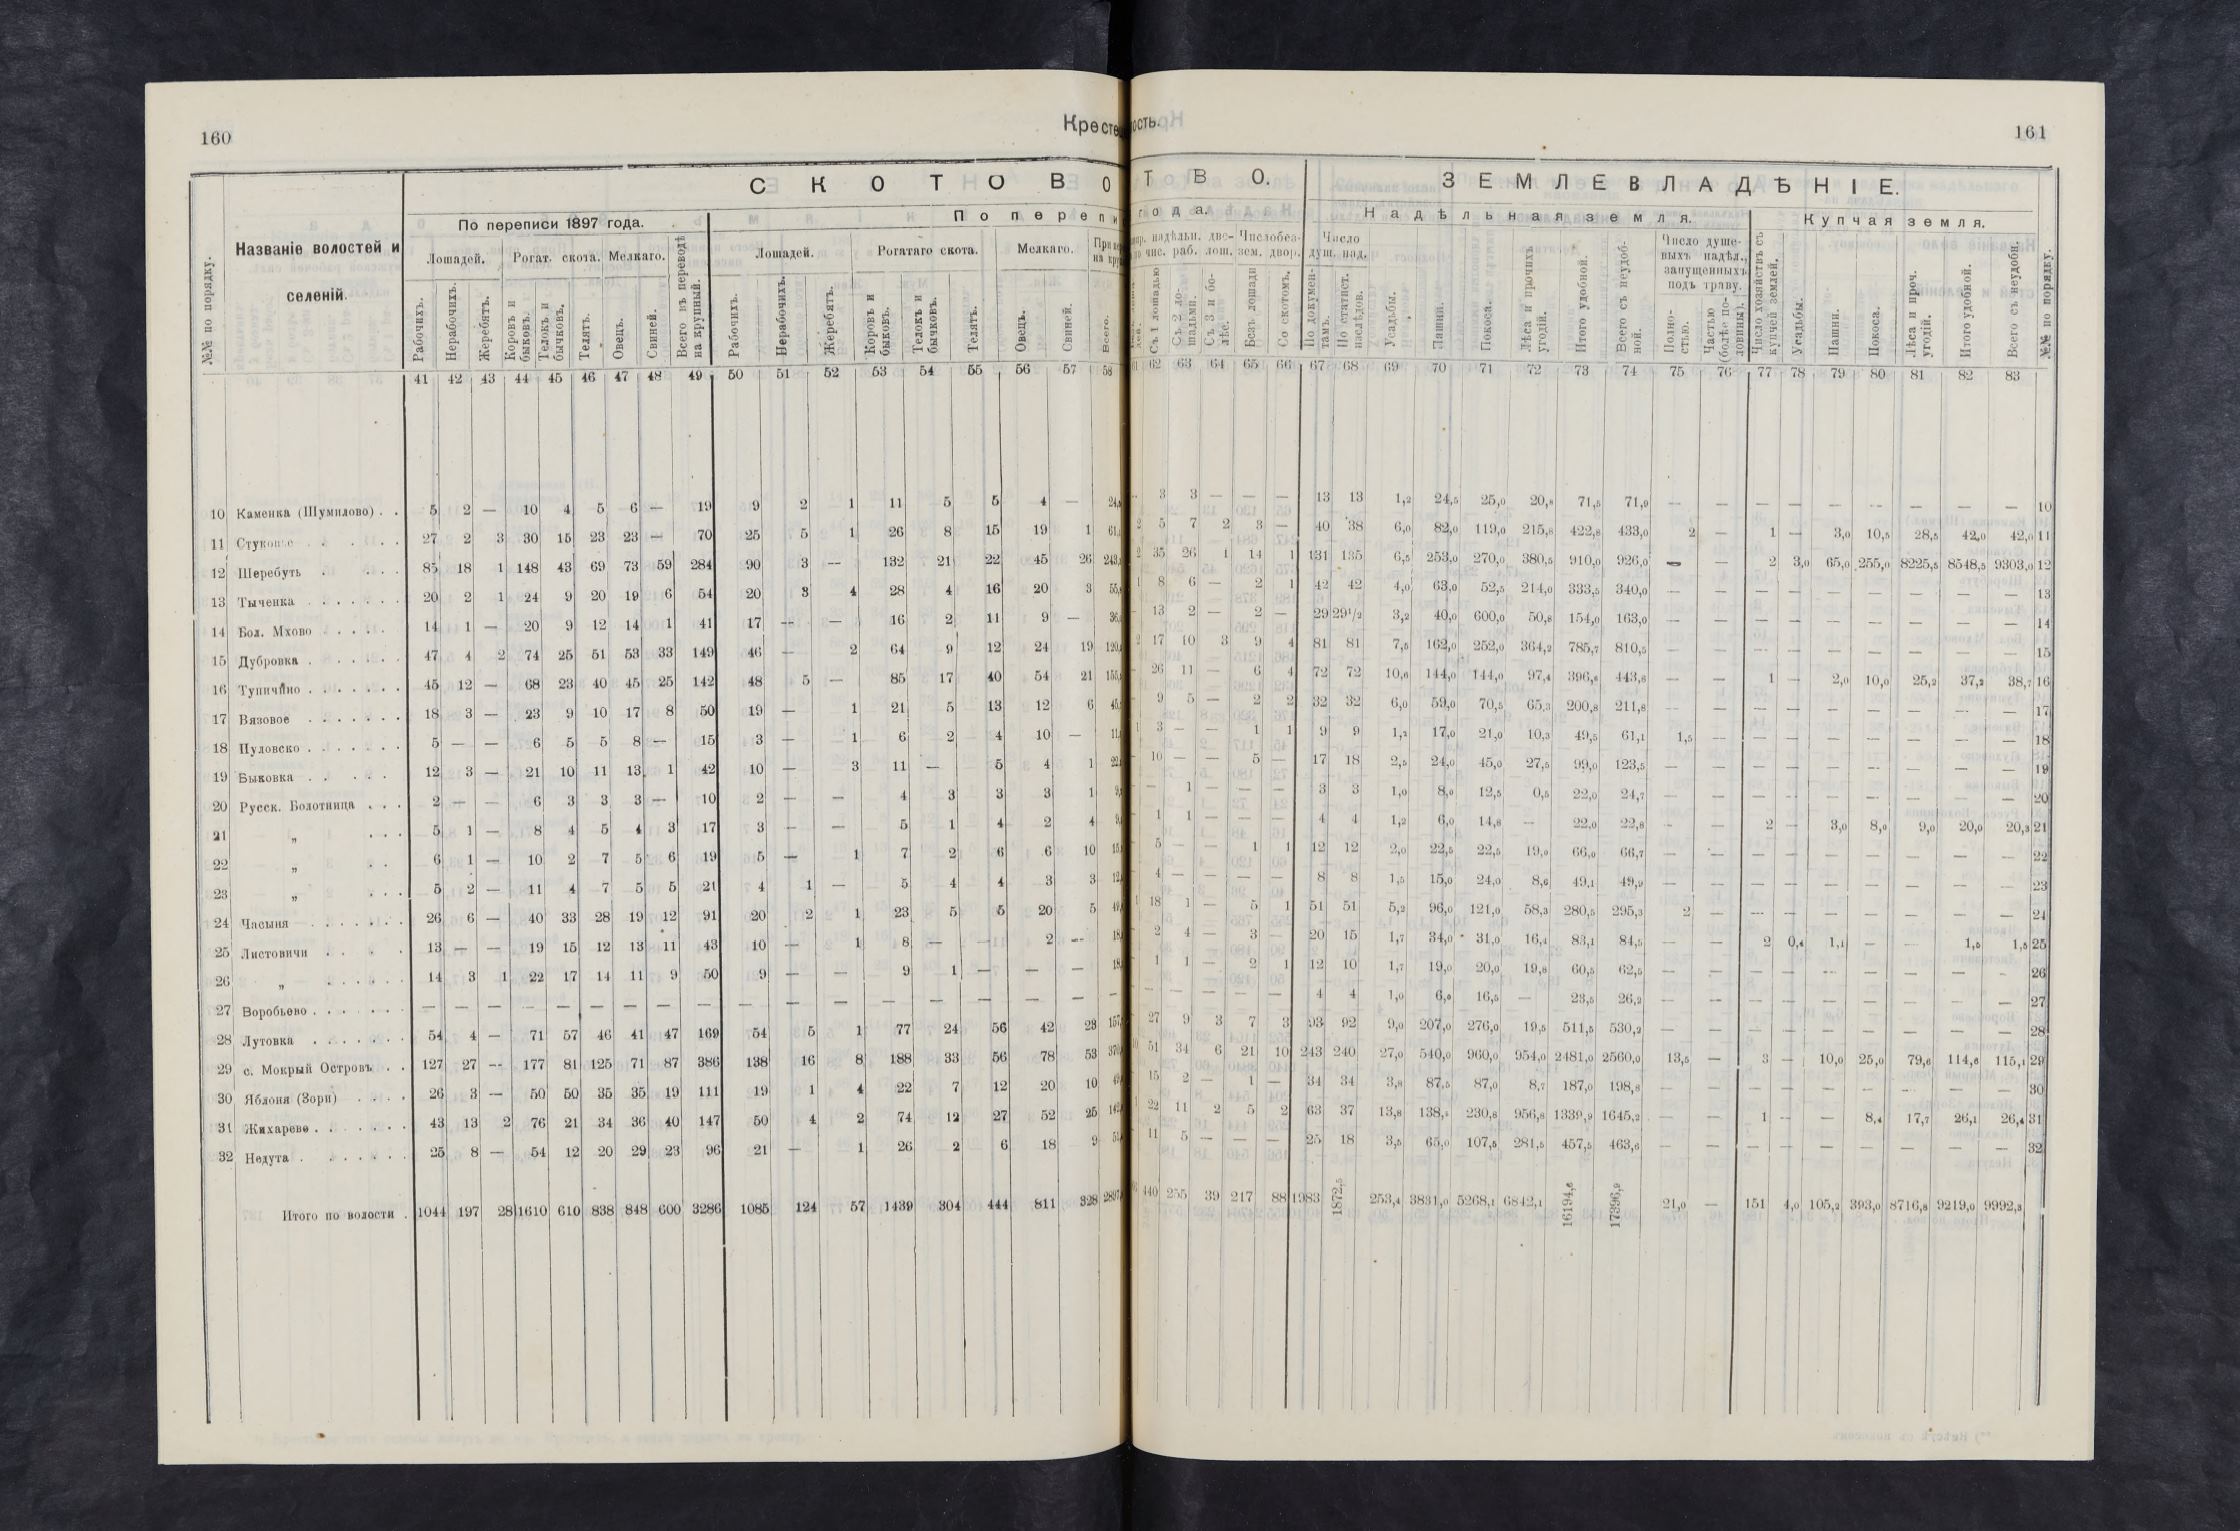 160
Крестe
ость.
161
СКОТОВО
ТВО.
ЗЕМЛЕВЛАДѢНІЕ.
№№ по порядку.
Названіе волостей и селеній.
По переписи 1897 года.
По переписи
года.
Надѣльная земля.
Купчая земля.
Лошадей. Рогат. скота. Мелкаго. Всего въ переводѣ на крупный.
Лошадей. Рогатаго скота. Мелкаго.
надѣльн. дво- Число без-
чис. раб. лош. зем. двор.
Число душ. над.
Число душе-
выхъ надѣл.,
запущенныхъ
подъ траву.
Рабочихъ. Нерабочихъ. Жеребятъ. Коровъ и быковъ. Телокъ и бычковъ. Телятъ. Овецъ. Свиней.
Рабочихъ. Нерабочихъ. Жеребятъ. Коровъ и быковъ. Телокъ и бычковъ. Телятъ. Овецъ. Свиней. Всего.
Съ 1 лошадью Съ 2 лошадьми. Съ 3 и болѣе. Безъ лошади Со скотомъ. По документамъ. По статист. наслѣдов. Усадьбы. Пашни. Покоса. Лѣса и прочихъ угодій. Итого удобной. Всего съ неудобной. Полностью. Частью (болѣе половины). Число хозяйствъ съ купчей землей. Усадьбы. Пашни. Покоса. Лѣса и проч. угодій. Итого удобной. Всего съ неудобн. №№ по порядку.
41 42 43 44 45 46 47 48 49 50 51 52 53 54 55 56 57 58
62 63 64 65 66 67 68 69 70 71 72 73 74 75 76 77 78 79 80 81 82 83
10 Каменка (Шумилово) . . 5 2 — 10 4 5 6 — 19 9 2 1 11 5 5 4 —
3 3 — — — 13 13 1,2 24,5 25,0 20,8 71,5 71,9 — — — — — — — — — 10
11 27 2 3 30 15 23 23 — 70 25 5 1 26 8 15 19 1
5 7 2 3 — 40 38 6,0 82,0 119,0 215,8 422,8 433,0 2 — 1 — 3,0 10,5 28,5 42,0 42,0 11
12 Шеребуть 85 18 1 148 43 69 73 59 284 90 3 — 132 21 22 45 26
35 26 1 14 1 131 135 6,5 253,0 270,0 380,5 910,0 926,0 — — 2 3,0 65,0 255,0 8225,5 8548,5 9303,0 12
13 Тыченка 20 2 1 24 9 20 19 6 54 20 3 4 28 4 16 20 3
8 6 — 2 1 42 42 4,0 63,0 52,5 214,0 333,5 340,0 — — — — — — — — — 13
14 Бол. Мхово 14 1 — 20 9 12 14 1 41 17 — — 16 2 11 9 —
13 2 — 2 — 29 29¹/₂ 3,2 40,0 600,0 50,8 154,0 163,0 — — — — — — — — — 14
15 Дубровка 47 4 2 74 25 51 53 33 149 46 — 2 64 9 12 24 19
17 10 3 9 4 81 81 7,5 162,0 252,0 364,2 785,7 810,5 — — — — — — — — — 15
16 Тупичино 45 12 — 68 23 40 45 25 142 48 5 — 85 17 40 54 21
26 11 — 6 4 72 72 10,6 144,0 144,0 97,4 396,6 443,6 — — 1 — 2,0 10,0 25,2 37,2 38,7 16
17 Вязовое 18 3 — 23 9 10 17 8 50 19 — 1 21 5 13 12 6
9 5 — 2 2 32 32 6,0 59,0 70,5 65,3 200,8 211,8 — — — — — — — — — 17
18 Пуловско 5 — — 6 5 5 8 — 15 3 — 1 6 2 4 10 —
3 — — 1 1 9 9 1,2 17,0 21,0 10,3 49,5 61,1 1,5 — — — — — — — — 18
19 Быковка 12 3 — 21 10 11 13 1 42 10 — 3 11 — 5 4 1
10 — — 5 — 17 18 2,5 24,0 45,0 27,5 99,0 123,5 — — — — — — — — — 19
20 Русск. Болотница . . . 2 — — 6 3 3 3 — 10 2 — — 4 3 3 3 1
— 1 — — — 3 3 1,0 8,0 12,5 0,5 22,0 24,7 — — — — — — — — — 20
21 „ . . . 5 1 — 8 4 5 4 3 17 3 — — 5 1 4 2 4
1 1 — — — 4 4 1,2 6,0 14,8 — 22,0 22,8 — — 2 — 3,0 8,0 9,0 20,0 20,3 21
22 „ . . 6 1 — 10 2 7 5 6 19 5 — 1 7 2 6 6 10
5 — — 1 1 12 12 2,0 22,5 22,5 19,0 66,0 66,7 — — — — — — — — — 22
23 „ . . . 5 2 — 11 4 7 5 5 21 4 1 — 5 4 4 3 3
4 — — — — 8 8 1,5 15,0 24,0 8,6 49,1 49,9 — — — — — — — — — 23
24 Часыня 26 6 — 40 33 28 19 12 91 20 2 1 23 5 5 20 5
18 1 — 5 1 51 51 5,2 96,0 121,0 58,3 280,5 295,3 2 — — — — — — — — 24
25 Листовичи 13 — — 19 15 12 13 11 43 10 — 1 8 — — 2 —
2 4 — 3 — 20 15 1,7 34,0 31,0 16,4 83,1 84,5 — — 2 0,4 1,1 — — 1,5 1,5 25
26 „ 14 3 1 22 17 14 11 9 50 9 — — 9 1 — — —
1 1 — 2 1 12 10 1,7 19,0 20,0 19,8 60,5 62,5 — — — — — — — — — 26
27 Воробьево — — — — — — — — — — — — — — — — — —
— — — — — 4 4 1,0 6,0 16,5 — 23,5 26,2 — — — — — — — — — 27
28 Лутовка 54 4 — 71 57 46 41 47 169 54 5 1 77 24 56 42 28
27 9 3 7 3 93 92 9,0 207,0 276,0 19,5 511,5 530,2 — — — — — — — — — 28
29 с. Мокрый Островъ . . 127 27 — 177 81 125 71 87 386 138 16 8 188 33 56 78 53
51 34 6 21 10 243 240 27,0 540,0 960,0 954,0 2481,0 2560,0 13,5 — 3 — 10,0 25,0 79,6 114,6 115,1 29
30 Яблоня (Зори) 26 3 — 50 50 35 35 19 111 19 1 4 22 7 12 20 10
15 2 — 1 — 34 34 3,8 87,5 87,0 8,7 187,0 198,8 — — — — — — — — — 30
31 Жихарево 43 13 2 76 21 34 36 40 147 50 4 2 74 12 27 52 25
22 11 2 5 2 63 37 13,8 138,5 230,8 956,8 1339,9 1645,2 — — 1 — — 8,4 17,7 26,1 26,4 31
32 Недута 25 8 — 54 12 20 29 23 96 21 — 1 26 2 6 18 9
11 5 — — — 25 18 3,5 65,0 107,5 281,5 457,5 463,6 — — — — — — — — — 32
Итого по волости . 1044 197 28 1610 610 838 848 600 3286 1085 124 57 1439 304 444 811 328
440 255 39 217 88 1983 1872,5 253,4 3831,0 5268,1 6842,1 16194,6 17396,9 21,0 — 151 4,0 105,2 393,0 8716,8 9219,0 9992,3